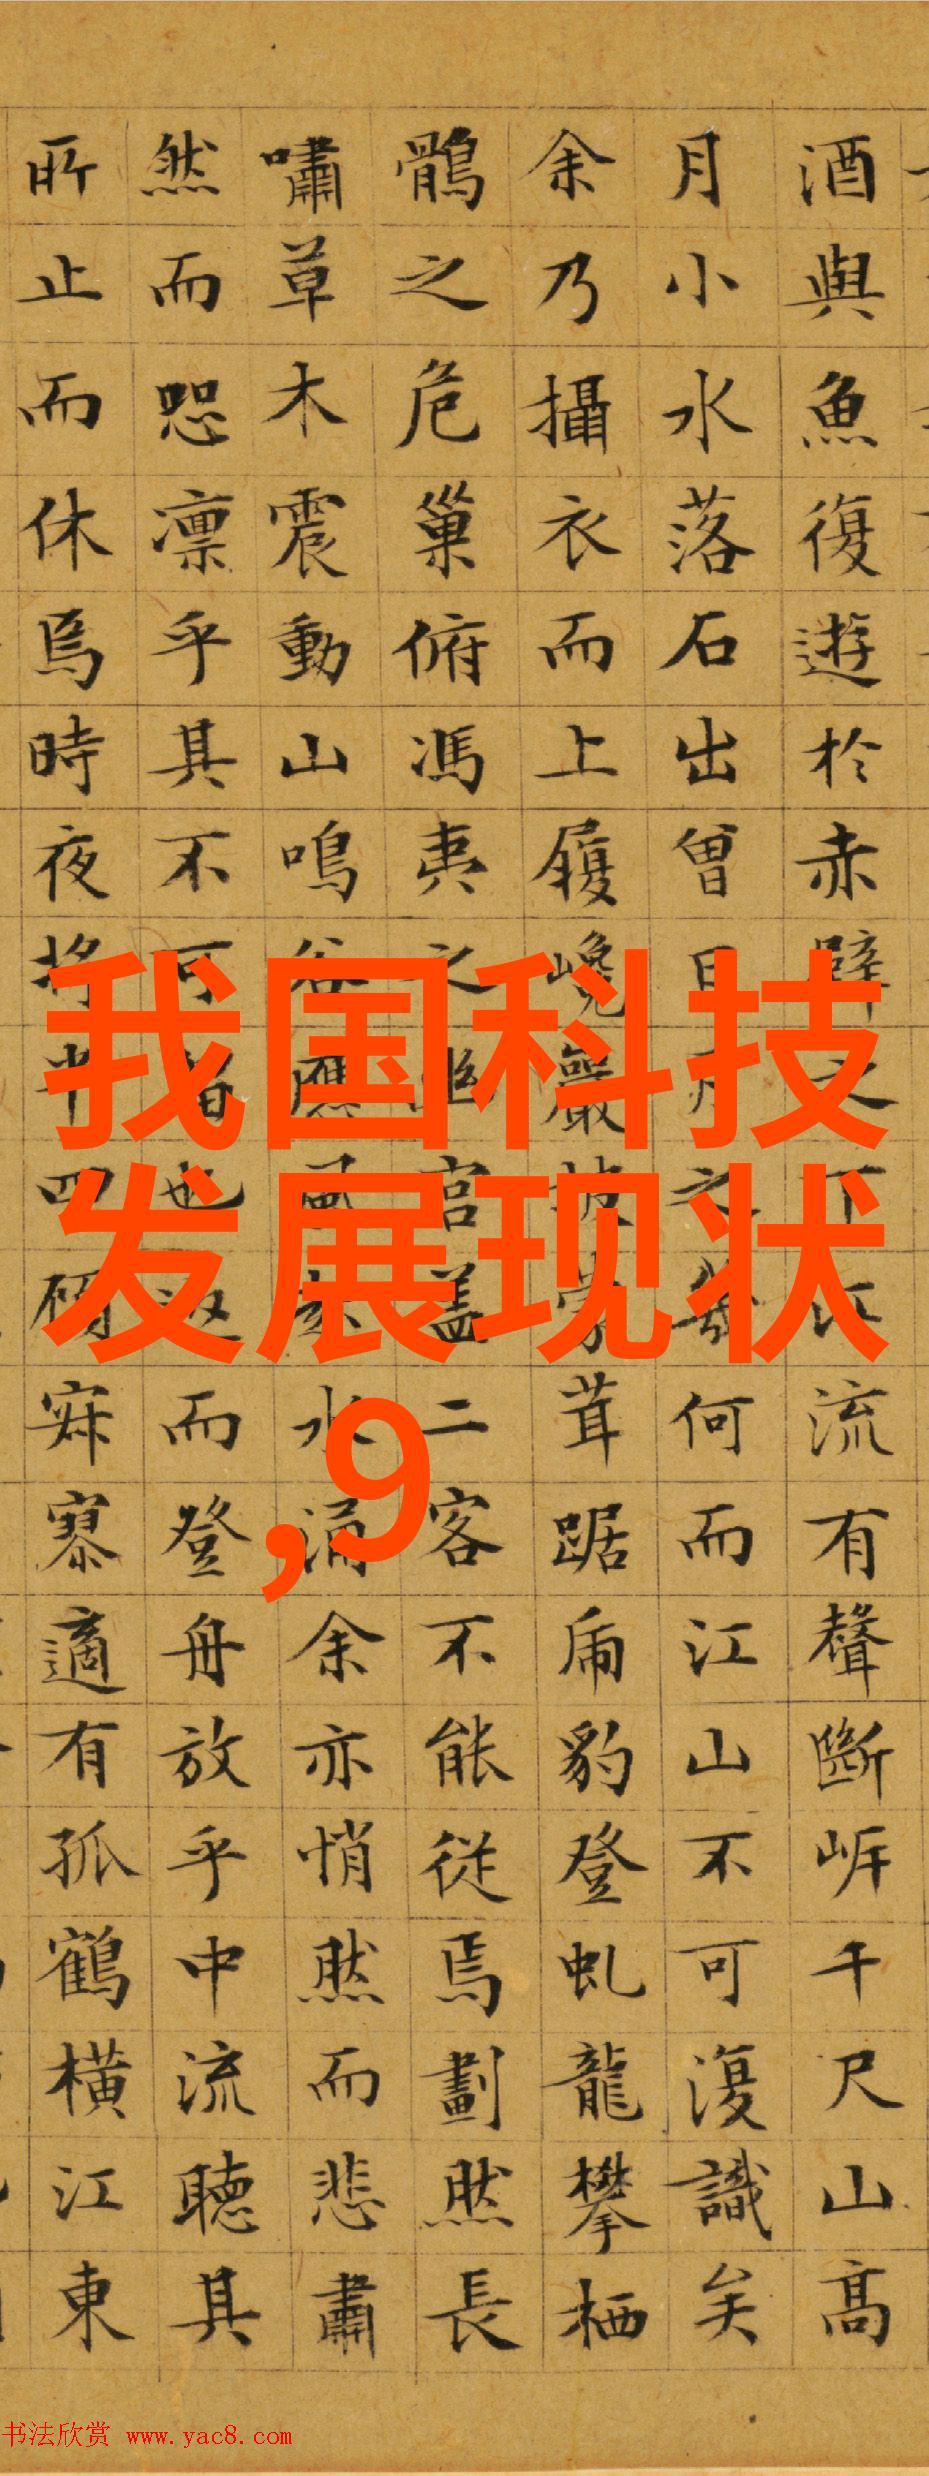 酒與魚復遊於赤壁之下江流有聲斷岸千尺山高
月小水落石出曾日月之幾何而江山不可復識矣
余乃攝衣而上履巉巖披蒙茸踞虎豹登虬龍攀栖
鶻之危巢俯馮夷之幽宮盖二客不能從焉劃然長
嘯草木震動山鳴谷應風起水涌余亦悄然而悲肅
然而恐凛乎其不可留也返而登舟放乎中流聽其
所止而休焉時夜將半四顧寂寥適有孤鶴橫江東
我国科技
发展现状
,9
书法欣赏 www.yac8.com